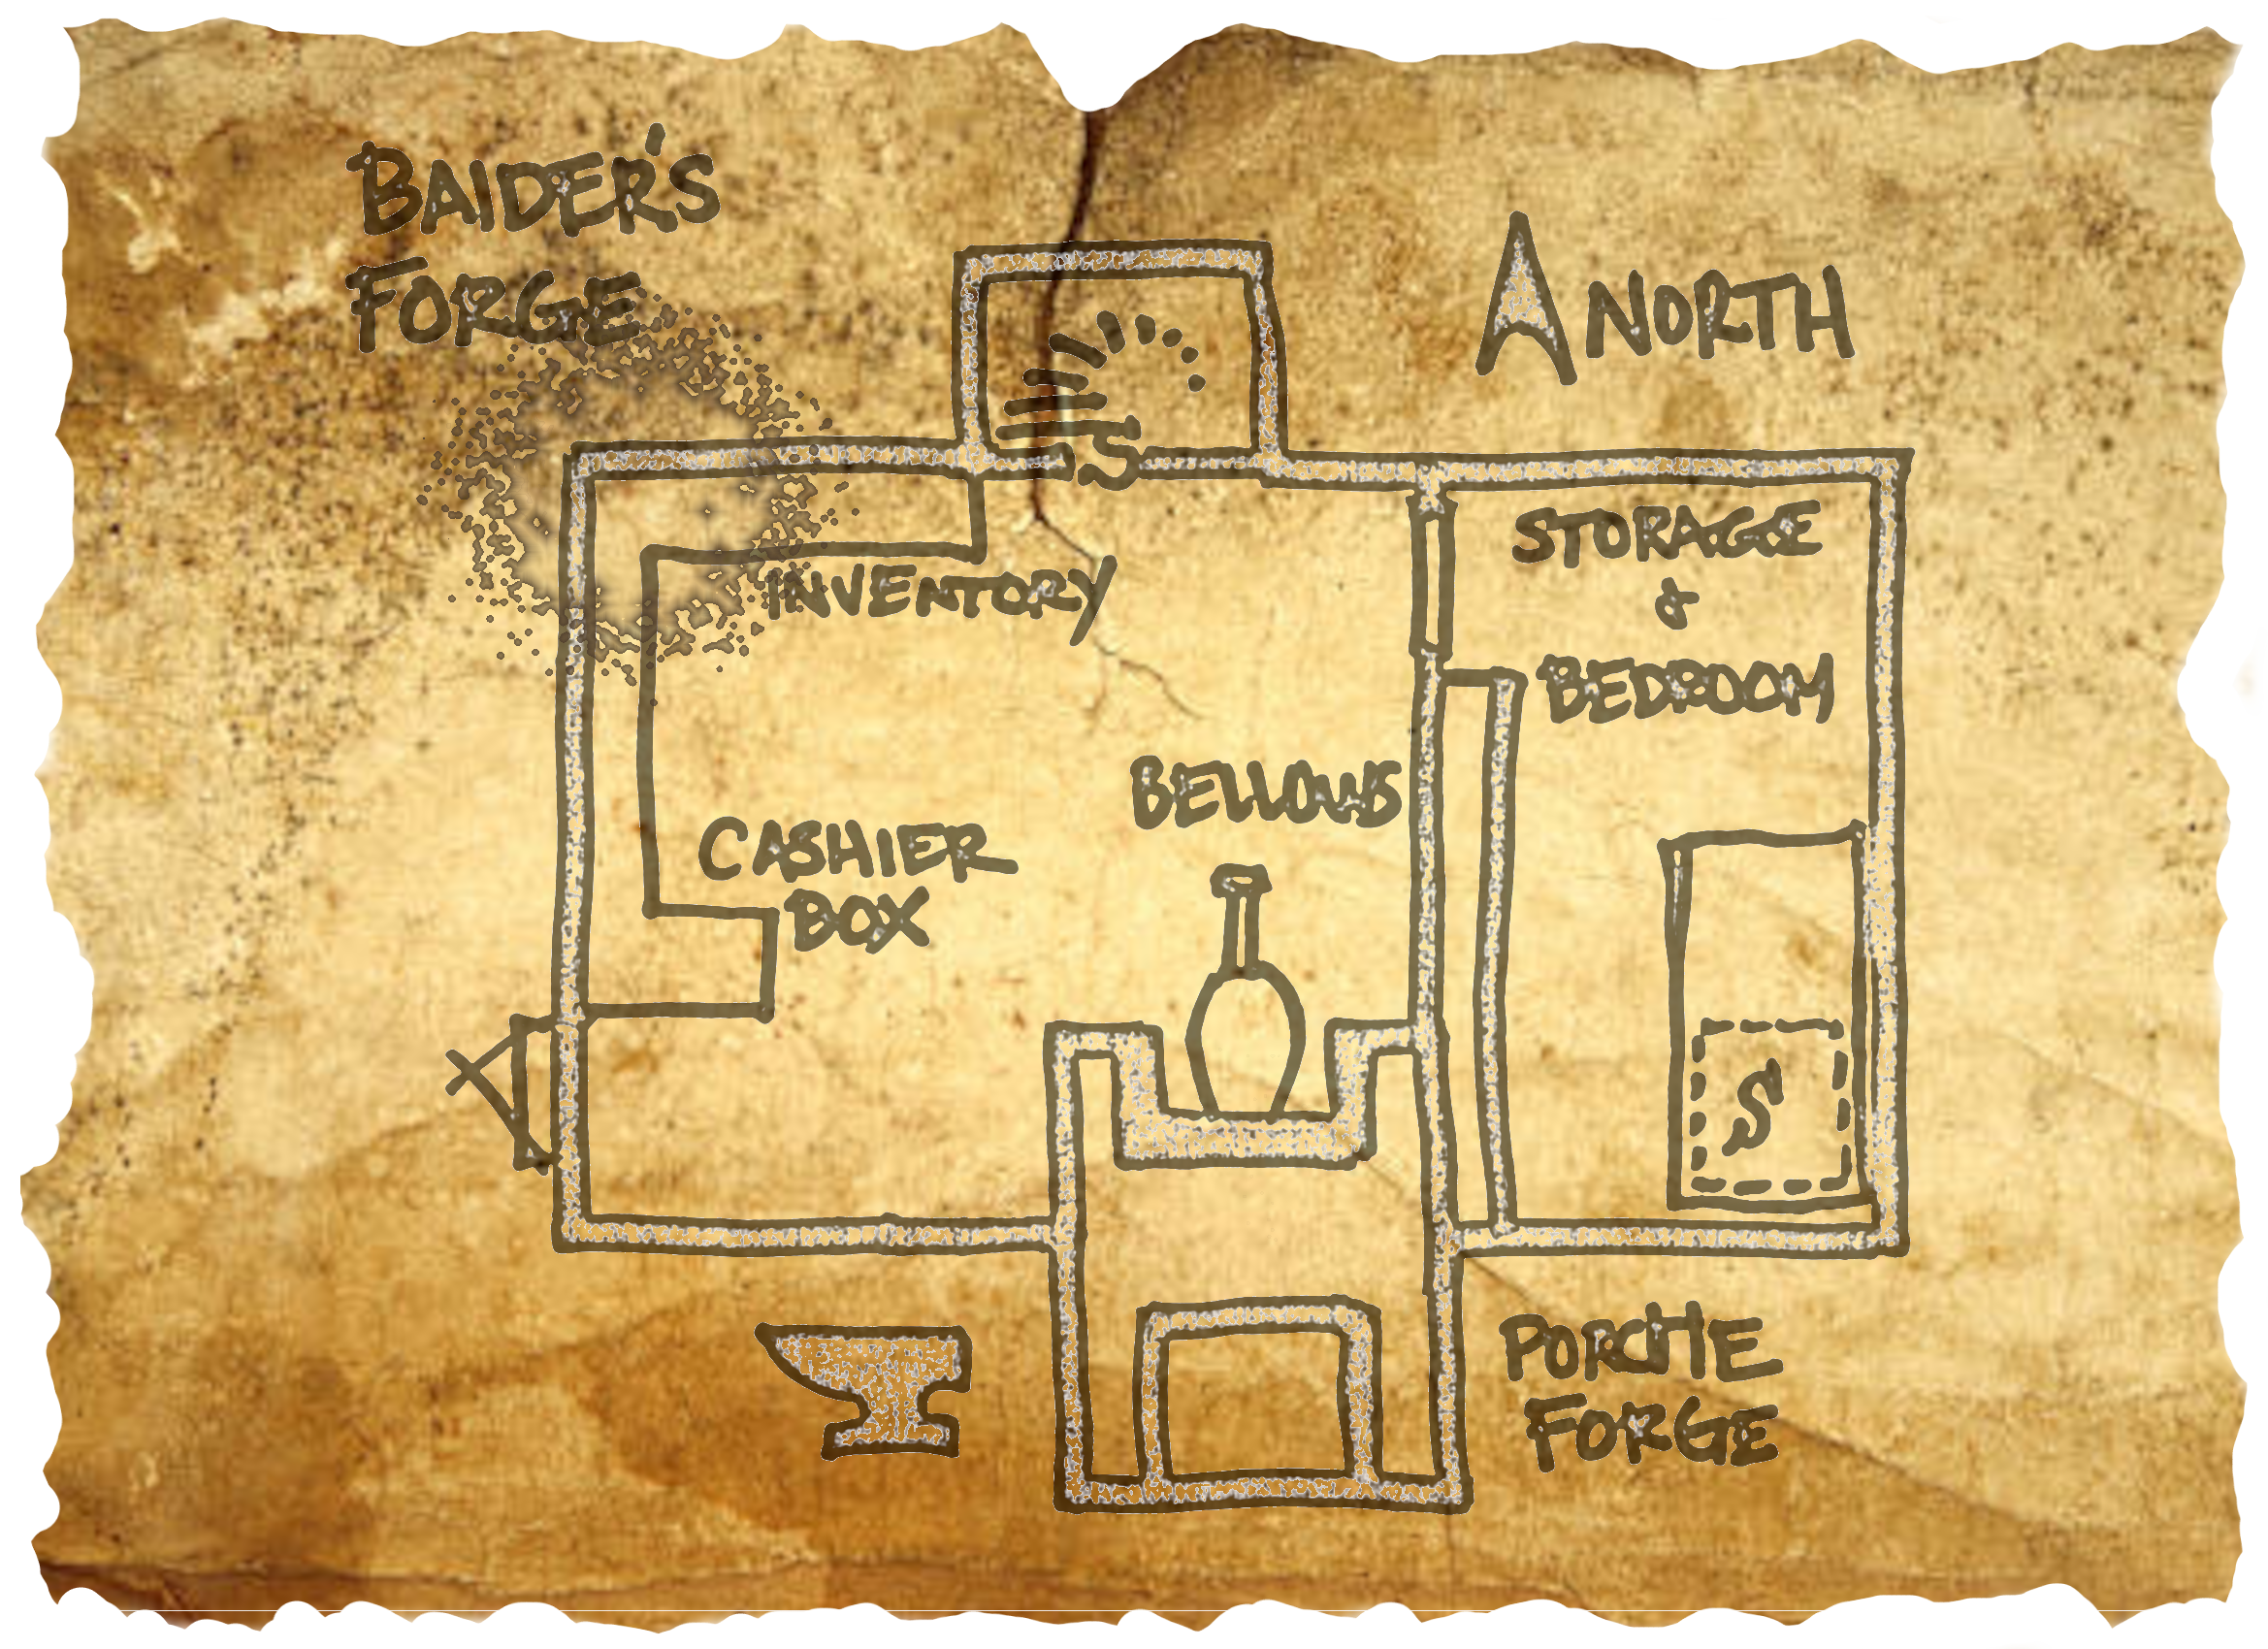 BAIDER'S
FORGE
NORTH
S
STORAGE
&
BEDROOM
INVENTORY
BELLOWS
CASHIER
BOX
S
PORCHE
FORGE